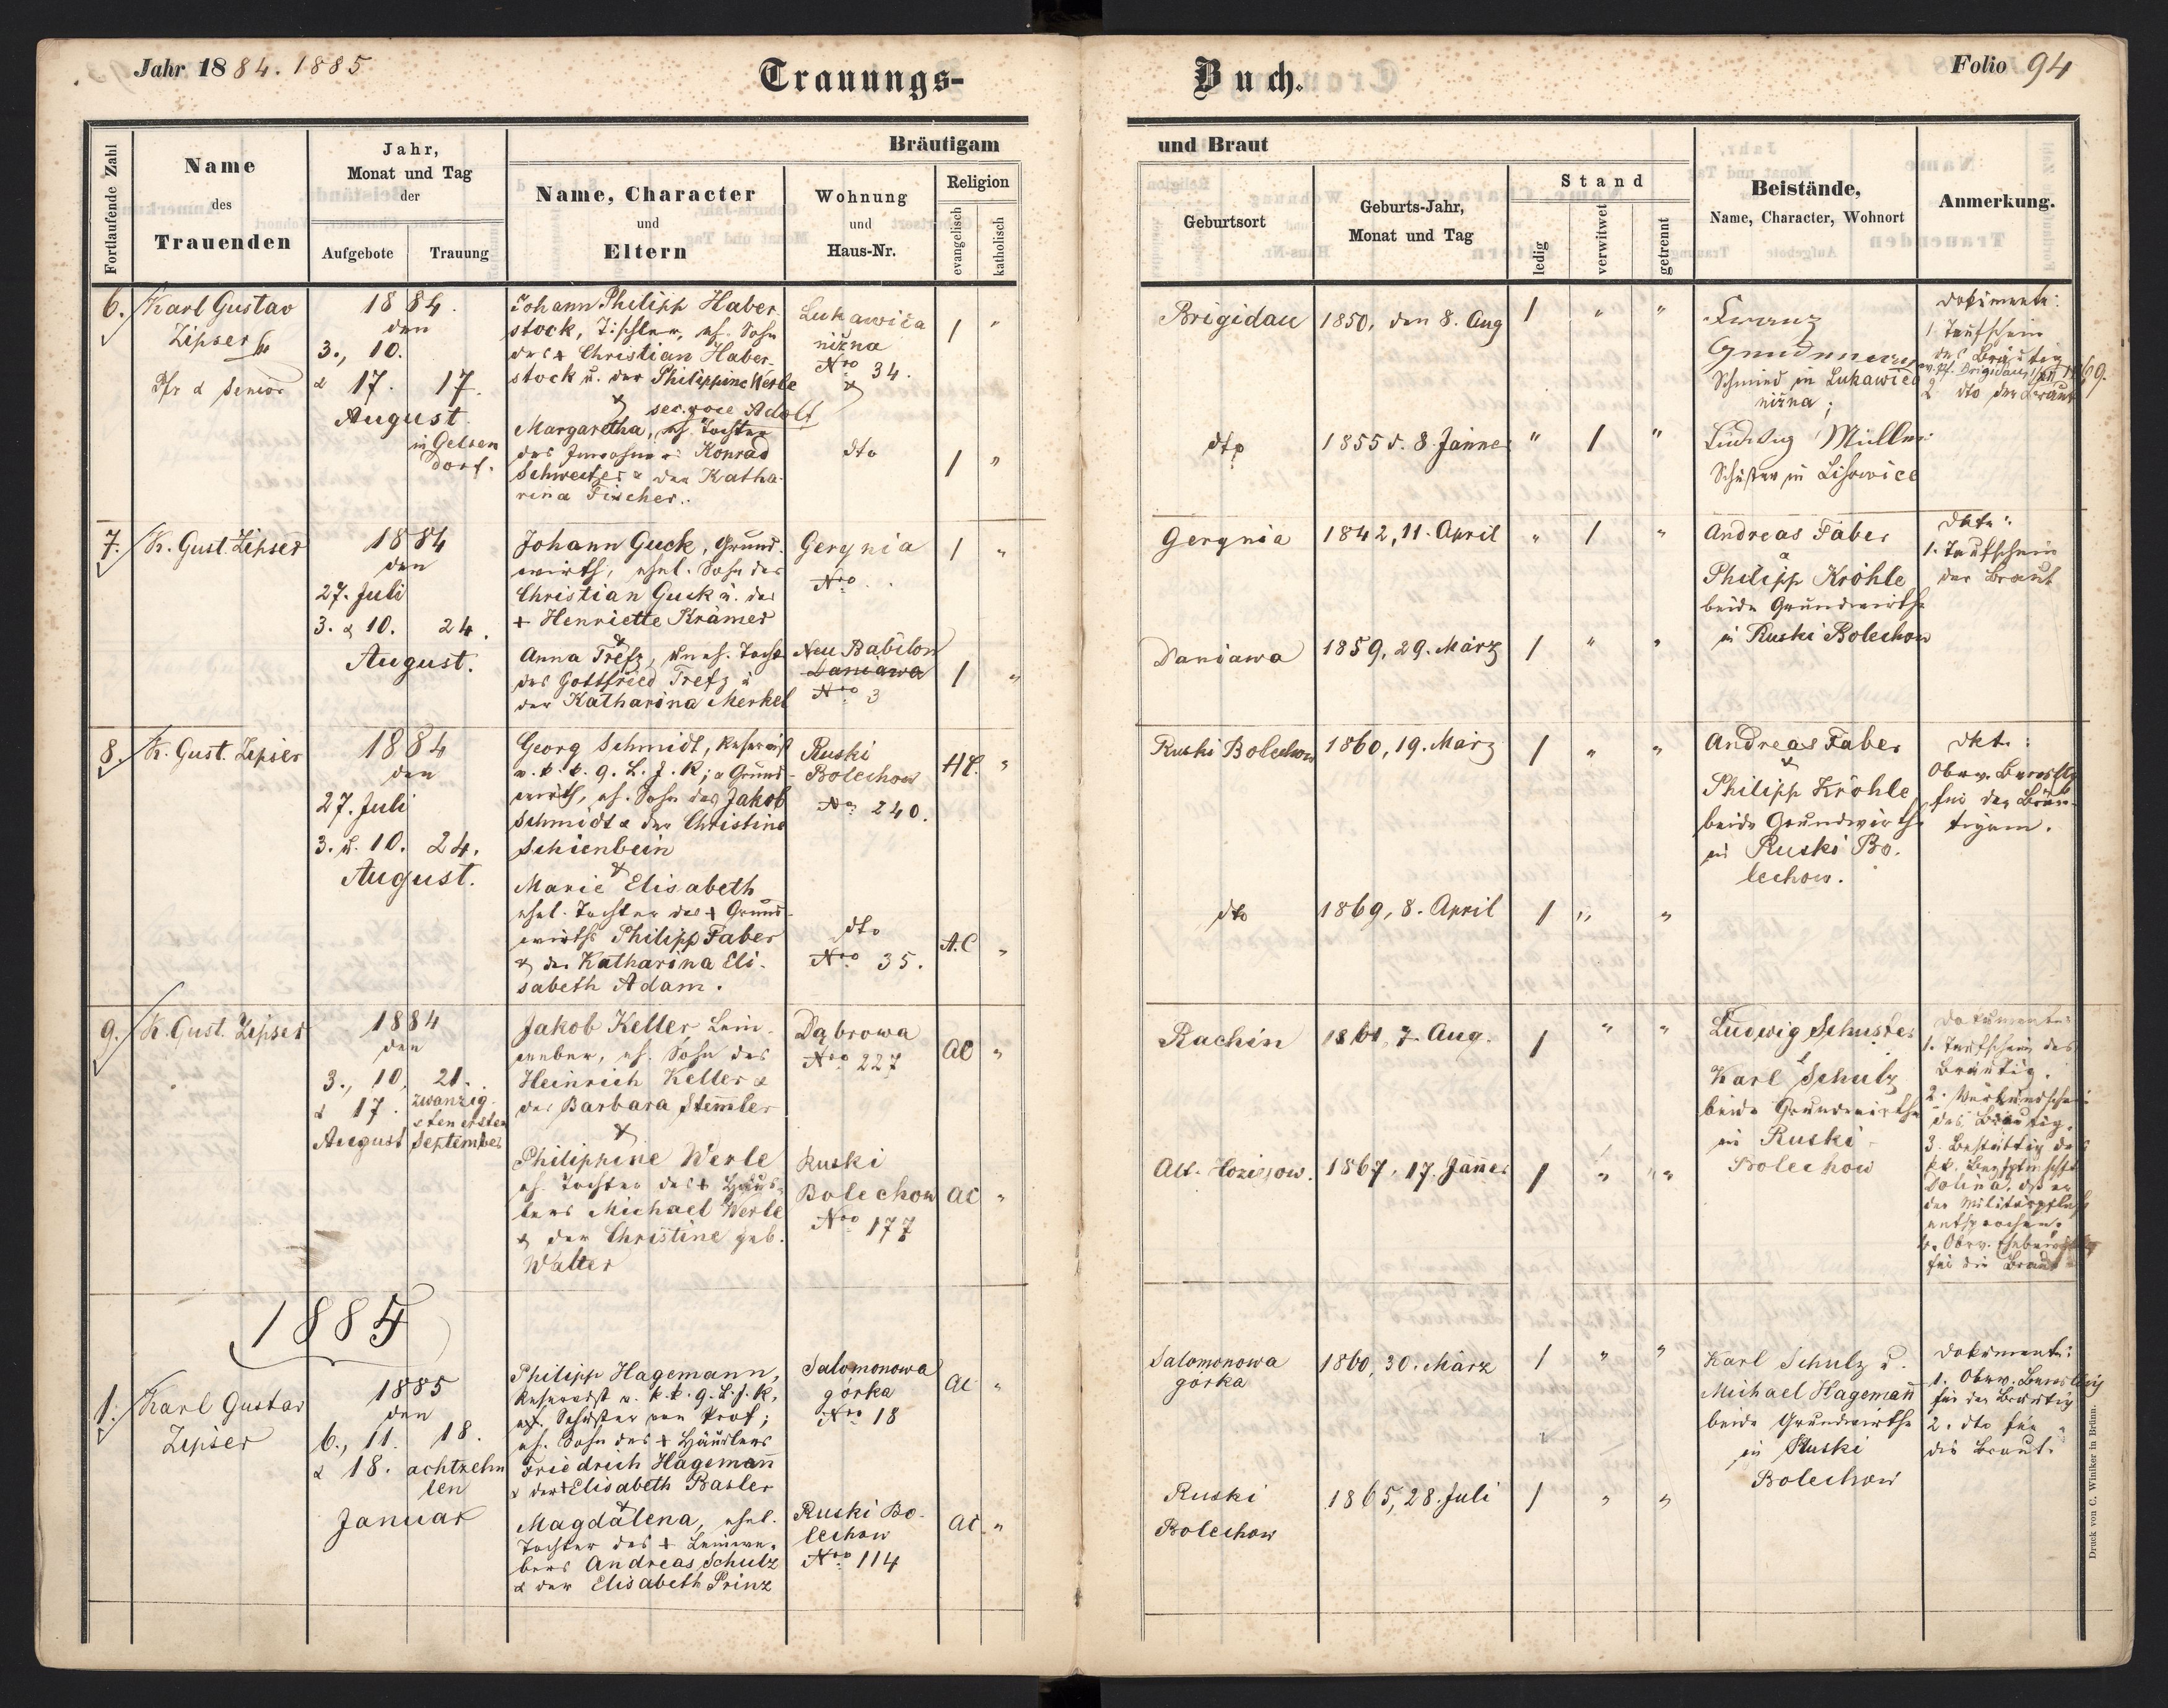 Jahr 1884. 1885
Trauungs-
Buch.
Folio 94
Fortlaufende Zahl
Name
des
Trauenden
Jahr,
Monat und Tag
der
Aufgebote
Trauung
Bräutigam
Name, Character
und
Eltern
Wohnung
und
Haus-Nr.
Religion
evangelisch
katholisch
und Braut
Geburtsort
Geburts-Jahr,
Monat und Tag
Stand
ledig
verwitwet
getrennt
Beistände,
Name, Character, Wohnort
Anmerkung.
6.
Karl Gustav
Zipser
Pfr & Senior
1884.
den
3., 10.
& 17. 17.
August
in Gelsen
dorf.
Johann Philipp Haber
stock, Tischler, eh. Sohn
des + Christian Haber
stock u. der Philippine Werle
&
Margaretha, eh. Tochter
des Konrad
Schweitzer & der Katha-
rina Fischer.
Lukawica
nižna
Nro 34.
&
dto
1 "
1 "
Brigidau
1850, den 8. Aug
1 " "
dto
1855 d. 8. Jänner
" 1 "
Franz
Schmied in Lukawica
nižna;
Ludwig Müller
Schuster in Lisowice
Dokumente:
1. Taufschein
des Bräutig
2 dto der Braut
7.
K. Gust. Zipser
1884
den
27. Juli
3. & 10. 24.
August.
Johann Guck, Grund-
wirth, ehel. Sohn des
Christian Guck u. der
+ Henriette Krämer
&
Anna Trefz, uneh. Tocht
des Gottfried Trefz u
der Katharina Merkel
Gerynia
Nro
Neu Babilon
Daniawa
Nro 3
1 "
1 "
Gerynia
1842, 11. April
" 1 "
Daniawa
1859, 29. März
1 " "
Andreas Faber
&
Philipp Kröhle
beide Grundwirthe
in Ruski Bolechow
Dkte:
1. Taufschein
der Braut
8.
K. Gust. Zipser
1884
den
27. Juli
3. u. 10. 24.
August.
Georg Schmidt, Reservist
& Grund-
wirth, eh. Sohn des Jakob
Schmidt & der Christine
Schienbein
&
Marie Elisabeth
ehel. Tochter des + Grund-
wirths Philipp Faber
& der Katharina Eli-
sabeth Adam.
Ruski
Bolechow
No 240.
dto
Nro 35.
HC. "
A.C "
Ruski Bolechow
1860, 19. März
1 " "
dto
1869, 8. April
1 " "
Andreas Faber
&
Philipp Kröhle
beide Grundwirthe
in Ruski Bo-
lechow.
Dkt.:
für den Bräu-
tigam.
9.
K. Gust. Zipser
1884
den
3., 10. 21.
& 17. zwanzig-
sten ersten
August September
Jakob Keller, Lein-
weber, eh. Sohn des
Heinrich Keller &
der Barbara Stem̄ler
&
Philippine Werle
eh. Tochter des + Häus-
lers Michael Werle
& der Christine geb.
Walter
Dąbrowa
Nro 227
Ruski
Bolechow
Nro 177
AC "
AC "
Rachin
1861, 7. Aug.
1 " "
1867, 17. Jäner
1 " "
Ludwig Schuster
&
Karl Schulz
beide Grundwirthe
in Ruski
Bolechow
Dokumente:
1. Taufschein des
Bräutig.
2. Verkündschein
des Bräutig.
3. Bestättig der
Dolina, dß er
der Militärpflicht
entsprochen.
für die Braut
1885
1.
Karl Gustav
Zipser
1885
den
6., 11. 18.
& 18. achtzehn
ten
Januar
Philipp Hagemann,
Reservist
eh. Sohn des + Häuslers
Friedrich Hageman̄
& der + Elisabeth Basler
&
Magdalena, ehel.
Tochter des + Leinwe-
bers Andreas Schulz
& der Elisabeth Prinz
Salomonowa
górka
Nro 18
Ruski Bo-
lechow
Nro 114
AC "
AC. "
Salomonowa
górka
1860, 30. März
1 " "
Ruski
Bolechow
1865, 28. Juli
1 " "
Karl Schulz u.
Michael Hageman̄
beide Grundwirthe
in Ruski
Bolechow
Dokumente:
für den Bräutig
2. dto für
die Braut.
Druck von C. Winiker in Brünn.